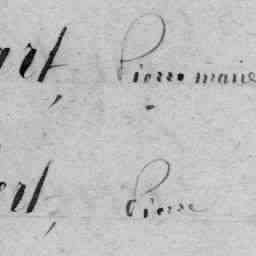 art, Pierre marie
ert, Pierre